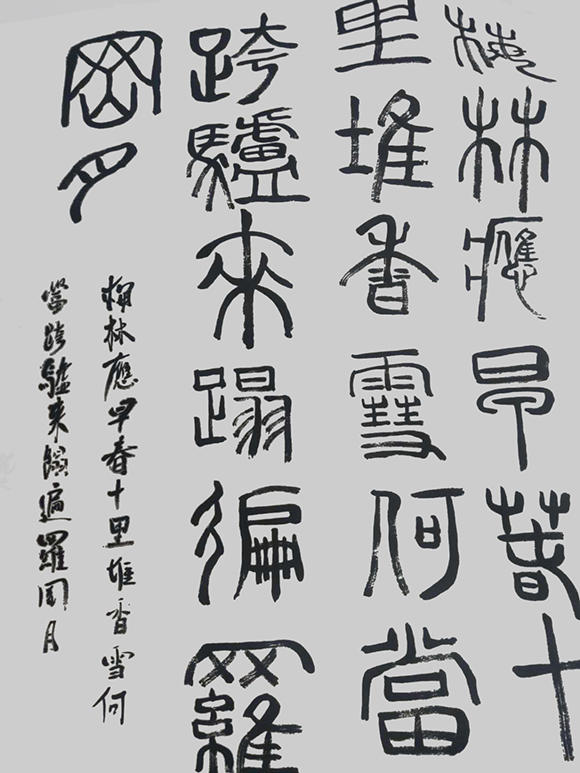 梅林應早春十
里堆香雪何當
跨驢來蹋徧羅
岡月
梅林應早春十里堆香雪何
當跨驢来蹋遍羅岡月